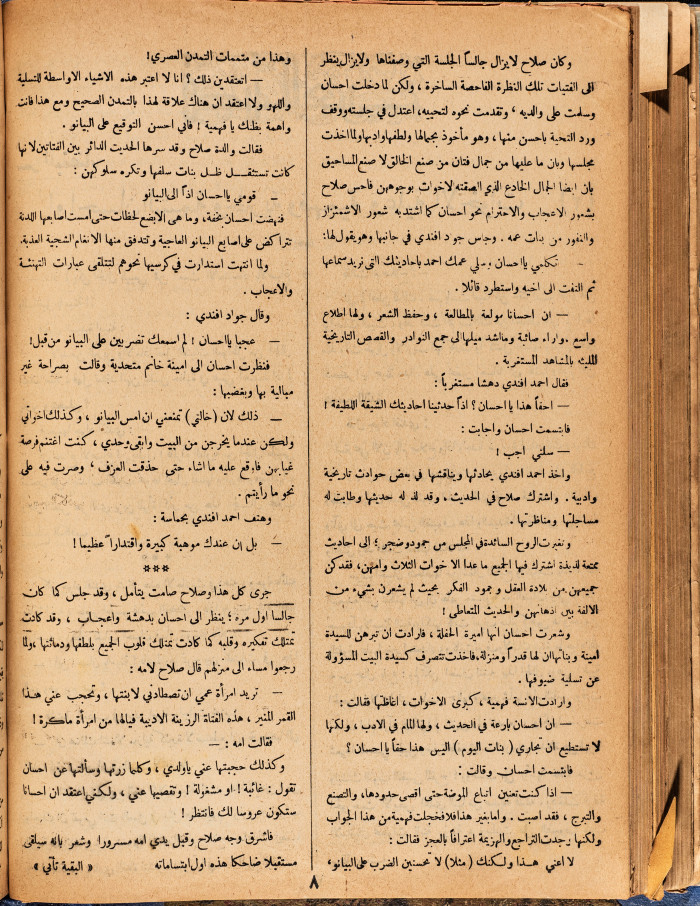 وكان صلاح لا يزال جالساً الجلسة التي وصفناها ولا يزال ينظر
الى الفتيات تلك النظرة الفاحصة الساخرة ، ولكن لما دخلت احسان
وسلمت على والديه ، وتقدمت نحوه لتحييه، اعتدل في جلسته ووقف
ورد التحية باحسن منها ، وهو مأخوذ بجمالها ولطفها وادبها ولما اخذت
مجلسها وبان ما عليها من جمال فتان من صنع الخالق لا صنع المساحيق
بان ايضا الجمال الخادع الذي الصقته الاخوات بوجوههن فاحس صلاح
بشعور الاعجاب والاحترام نحو احسان كما اشتد به شعور الاشمئزاز
والنفور من بنات عمه . وجلس جواد افندي في جانبها وهو يقول لها:
- تكلمي يا احسان وسلي عمك احمد باحاديثك التي نريد سماعها
ثم التفت الى اخيه واستطرد قائلا .
— ان احسانا مولعة بالمطالعة ، وحفظ الشعر ، ولها اطلاع
واسع . واراء صائبة وما اشد ميلها الى جمع النوادر والقصص التاريخية
المليئة بالمشاهد المستغربة .
فقال احمد افندي دهشا مستغرباً :
— احقاً هذا يا احسان ؟ اذاً حدثينا احاديثك الشيقة اللطيفة !
فابتسمت احسان واجابت :
— سلني اجب !
واخذ احمد افندي يحادثها ويناقشها في بعض حوادث تاريخية
وادبية . واشترك صلاح في الحديث . وقد لذ له حديثها وطابت له
مساجلتها ومناظرتها .
وتغيرت الروح السائدة في المجلس من جمود وضجر ؛ الى احاديث
ممتعة لذيذة اشترك فيها الجميع ما عدا الاخوات الثلاث وامهن، فقد كن
جميعهن من بلادة العقل وجمود الفكر بحيث لم يشعرن بشيء من
الالفة بين اذهانهن والحديث المتعاطى !
وشعرت احسان انها اميرة الحفلة ، فارادت ان تبرهن للسيدة
امينة وبناتها ان لها قدراً ومنزلة، فاخذت تتصرف كسيدة البيت المسؤولة
عن تسلية ضيوفها .
وارادت الانسة فهمية ، كبرى الاخوات ، اغاظتها فقالت :
— ان احسان بارعة في الحديث ، ولها المام في الادب ، ولكنها
لا تستطيع ان تجاري ( بنات اليوم ) اليس هذا حقاً يا احسان ؟
فابتسمت احسان وقالت :
— اذا كنت تعنين اتباع الموضة حتى اقصى حدودها، والتصنع
والتبرج ، فقد اصبت . واما بغير هذا فلا فخجلت فهمية من هذا الجواب
ولكنها وجدت التراجع والهزيمة اعترافاً بالعجز فقالت :
لا اعني هذا ولكنك ( مثلا ) لا تحسنين الضرب على البيانو،
وهذا من متممات التمدن العصري !
— اتعتقدين ذلك ؟ انا لا اعتبر هذه الاشياء الا واسطة للتسلية
واللهو ولا اعتقد ان هناك علاقة لهذا بالتمدن الصحيح ومع هذا فانت
واهمة بظنك يا فهمية ! فاني احسن التوقيع على البيانو .
فقالت والدة صلاح وقد سرها الحديث الدائر بين الفتاتين لانها
كانت تستثقل ظل بنات سلفها وتكره سلوكهن :
— قومي يا احسان اذاً الى البيانو
فنهضت احسان بخفة، وما هي الا بضع لحظات حتى امست اصابعها اللدنة
تتراكض على اصابع البيانو العاجية وتتدفق منها الانغام الشجية العذبة.
ولما انتهت استدارت في كرسيها نحوهم لتتلقى عبارات التهنئة
والاعجاب .
وقال جواد افندي :
— عجبا يا احسان ! لم اسمعك تضربين على البيانو من قبل !
فنظرت احسان الى امينة خانم متحدية وقالت بصراحة غير
مبالية بها وبغضبها :
— ذلك لان (خالتي) تمنعني ان امس البيانو ، وكذلك اخواتي
ولكن عندما يخرجن من البيت وابقى وحدي ، كنت اغتنم فرصة
غيابهن فاوقع عليه ما اشاء حتى حذقت العزف ، وصرت فيه على
نحو ما رأيتم .
وهتف احمد افندي بحماسة :
— بل ان عندك موهبة كبيرة واقتداراً عظيما !
***
جرى كل هذا وصلاح صامت يتأمل ، وقد جلس كما كان
جالسا اول مرة ؛ ينظر الى احسان بدهشة واعجاب ، وقد كادت
تمتلك تفكيره وقلبه كما كادت تمتلك قلوب الجميع بلطفها ودماثتها ، ولما
رجعوا مساء الى منزلهم قال صلاح لامه :
— تريد امرأة عمي ان تصطادني لابنتها ، وتحجب عني هذا
القمر المنير ، هذه الفتاة الرزينة الاديبة فيالها من امرأة ماكرة !
فقالت امه : —
وكذلك حجبتها عني يا ولدي ، وكلما زرتها وسألتها عن احسان
تقول : غائبة ! او مشغولة ! وتقصيها عني ، ولكني اعتقد ان احسانا
ستكون عروسا لك فانتظر !
فاشرق وجه صلاح وقبل يدي امه مسرورا وشعر بانه سيلقى
مستقبلا ضاحكا هذه اول ابتساماته « البقية تأتي »
٨